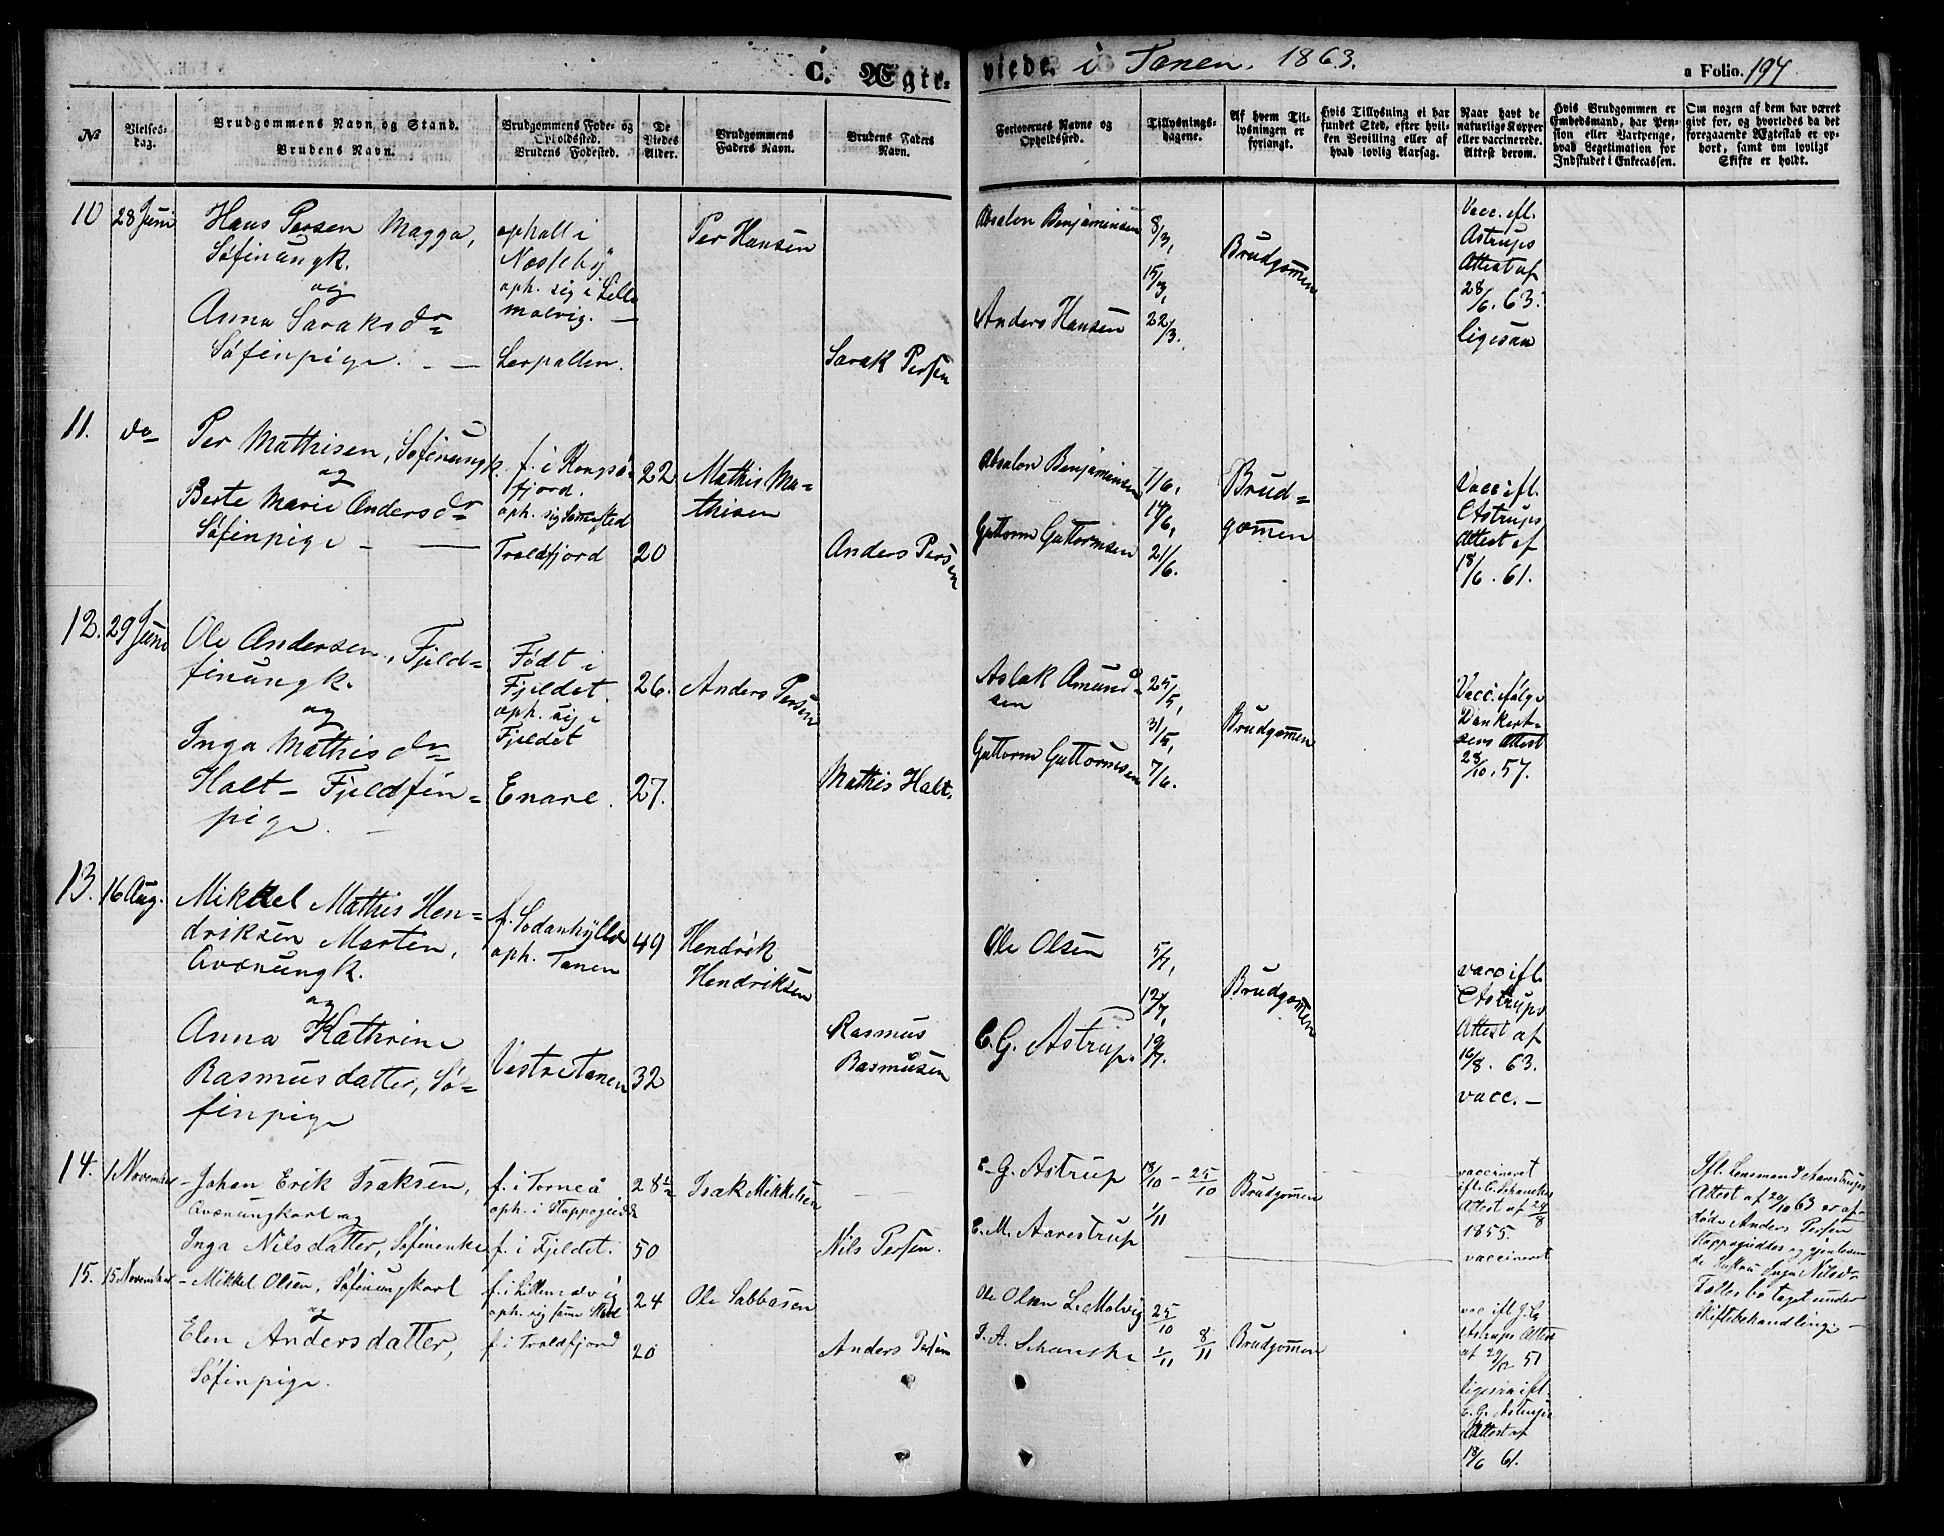 C. Ægte-
viede. i Tanen. 1863.
a Folio. 197.
No
Vielses-
dag.
Brudgommens Navn og Stand.
Brudens Navn.
Brudgommens Føde- og
Opholdssted.
Brudens Fødested.
De
Viedes
Alder.
Brudgommens
Faders Navn.
Brudens Faders
Navn.
Forlovernes Navne og
Opholdssted.
Tillysnings-
dagene.
Af hvem Til-
lysningen er
forlangt.
Hvis Tillysning ei har
fundet Sted, efter hvil-
ken Bevilling eller af
hvad lovlig Aarsag.
Naar havt de
naturlige Kopper
eller vaccinerede.
Attest derom.
Hvis Brudgommen er
Embedsmand, har Pen-
sion eller Vartpenge,
hvad Legetimation for
Indskudet i Enkecassen.
Om nogen af dem har været
givt før, og hvorledes da det
foregaaende Ægteskab er op-
hørt, samt om lovligt
Skifte er holdt.
10 28 Juni
Hans Persen Magga,
Søfinungk.
og
Anna Saraksdr
Søfinpige.
ophall i
Nesseby
oph. sig i Lille
malvig.
Lerpallen.
Per Hansen
Sarak Persen
Absalon Benjaminsen
Anders Hansen
8/3,
15/3,
22/3.
Brudgomen
Vacc. efl.
Astrups
Attest af
28/6. 63.
ligesaa
11. do
Per Mathisen, Søfinungk.
og
Berte Marie Andersdr
Søfinpige
f. i Kongsø
fjord.
oph. sig samested
Troldfjord
22
20
Mathis Ma-
thisen
Anders Persen
Absalon Benjaminsen
Guttorm Guttormsen
7/6,
14/6,
21/6.
Brud-
gomen
Vacc ifl.
Astrups
Attest af
18/6. 61.
12. 29 Juni
Ole Andersen, Fjeld-
finungk.
og
Inga Mathisdr
Halt - Fjeldfin-
pige.
Født i
Fjeldet.
oph. sig i
Fjeldet
Enare.
26.
27.
Anders Persen
Mathis Halt.
Aslak Amund-
sen
Guttorm Guttormsen
25/5,
31/5,
7/6.
Brudgomen
Vacc. ifølge
Dankert-
sens Attest
28/10. 57.
13. 16 Aug.
Mikkel Mathis Hen-
driksen Marten,
Qvænungk.
og
Anna Kathrine
Rasmusdatter, Sø-
finpige
f. Sodankylle
oph. Tanen
Vestre Tanen
49
32
Hendrik
Hendriksen
Rasmus
Rasmusen
Ole Olsen
C. G. Astrup.
5/7,
12/7,
19/7.
Brudgomen
vacc ifl.
Astrups
Attest af
16/8. 63.
vacc. -
14. 1 November
Johan Erik Isaksen,
Qvænungkarl og
Inga Nilsdatter, Søfinenke
f. i Torneå
oph. i Stappogiedde
f. i Fjeldet.
28½
50
Isak Mikkelsen
Nils Persen.
C. G. Astrup
E. M. Aarestrup
18/10 - 25/10
1/11
Brudgomen
vaccineret
ifl. C. Schanches
Attest af 29/8
1855.
vaccineret
Ifl. Lensmand Aarestrups
Attest af 29/10 63 er af-
døde Anders Persen
Stappogieddes og gjenleven
de Hustru Inga Nilsdr
Fællesbo taget under
Skiftebehandling. -
15. 15 November
Mikkel Olsen, Søfinungkarl
og
Elen Andersdatter,
Søfinpige.
f. i Lillemalvig
oph. sig same Sted
f. i Troldfjord
24
20
Ole Sabbasen
Anders Persen
Ole Olsen L. Malvig
I. A. Schanche
25/10
1/11 8/11
Brudgomen
vac. ifl.
Astrups Attest
51
ligesaa ifl.
C. G. Astrups
Attest af
18/6 61.